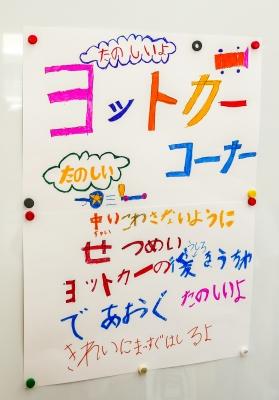 たのしいよ
ヨットカー
コーナー
たのしい
中いこわさないように
ちゅい
せつめい
ヨットカーの後きうちわ
うしろ
であおぐ たのしいよ
きれいにまっすぐはしるよ